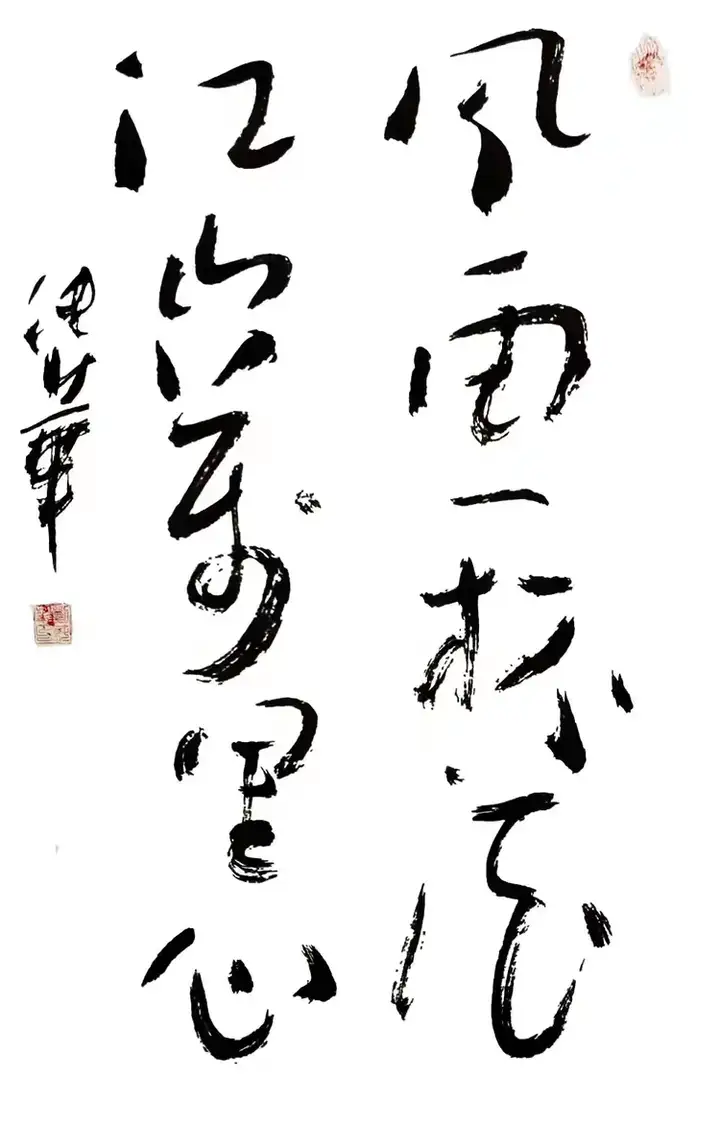 风雨一杯酒
江山萬里心